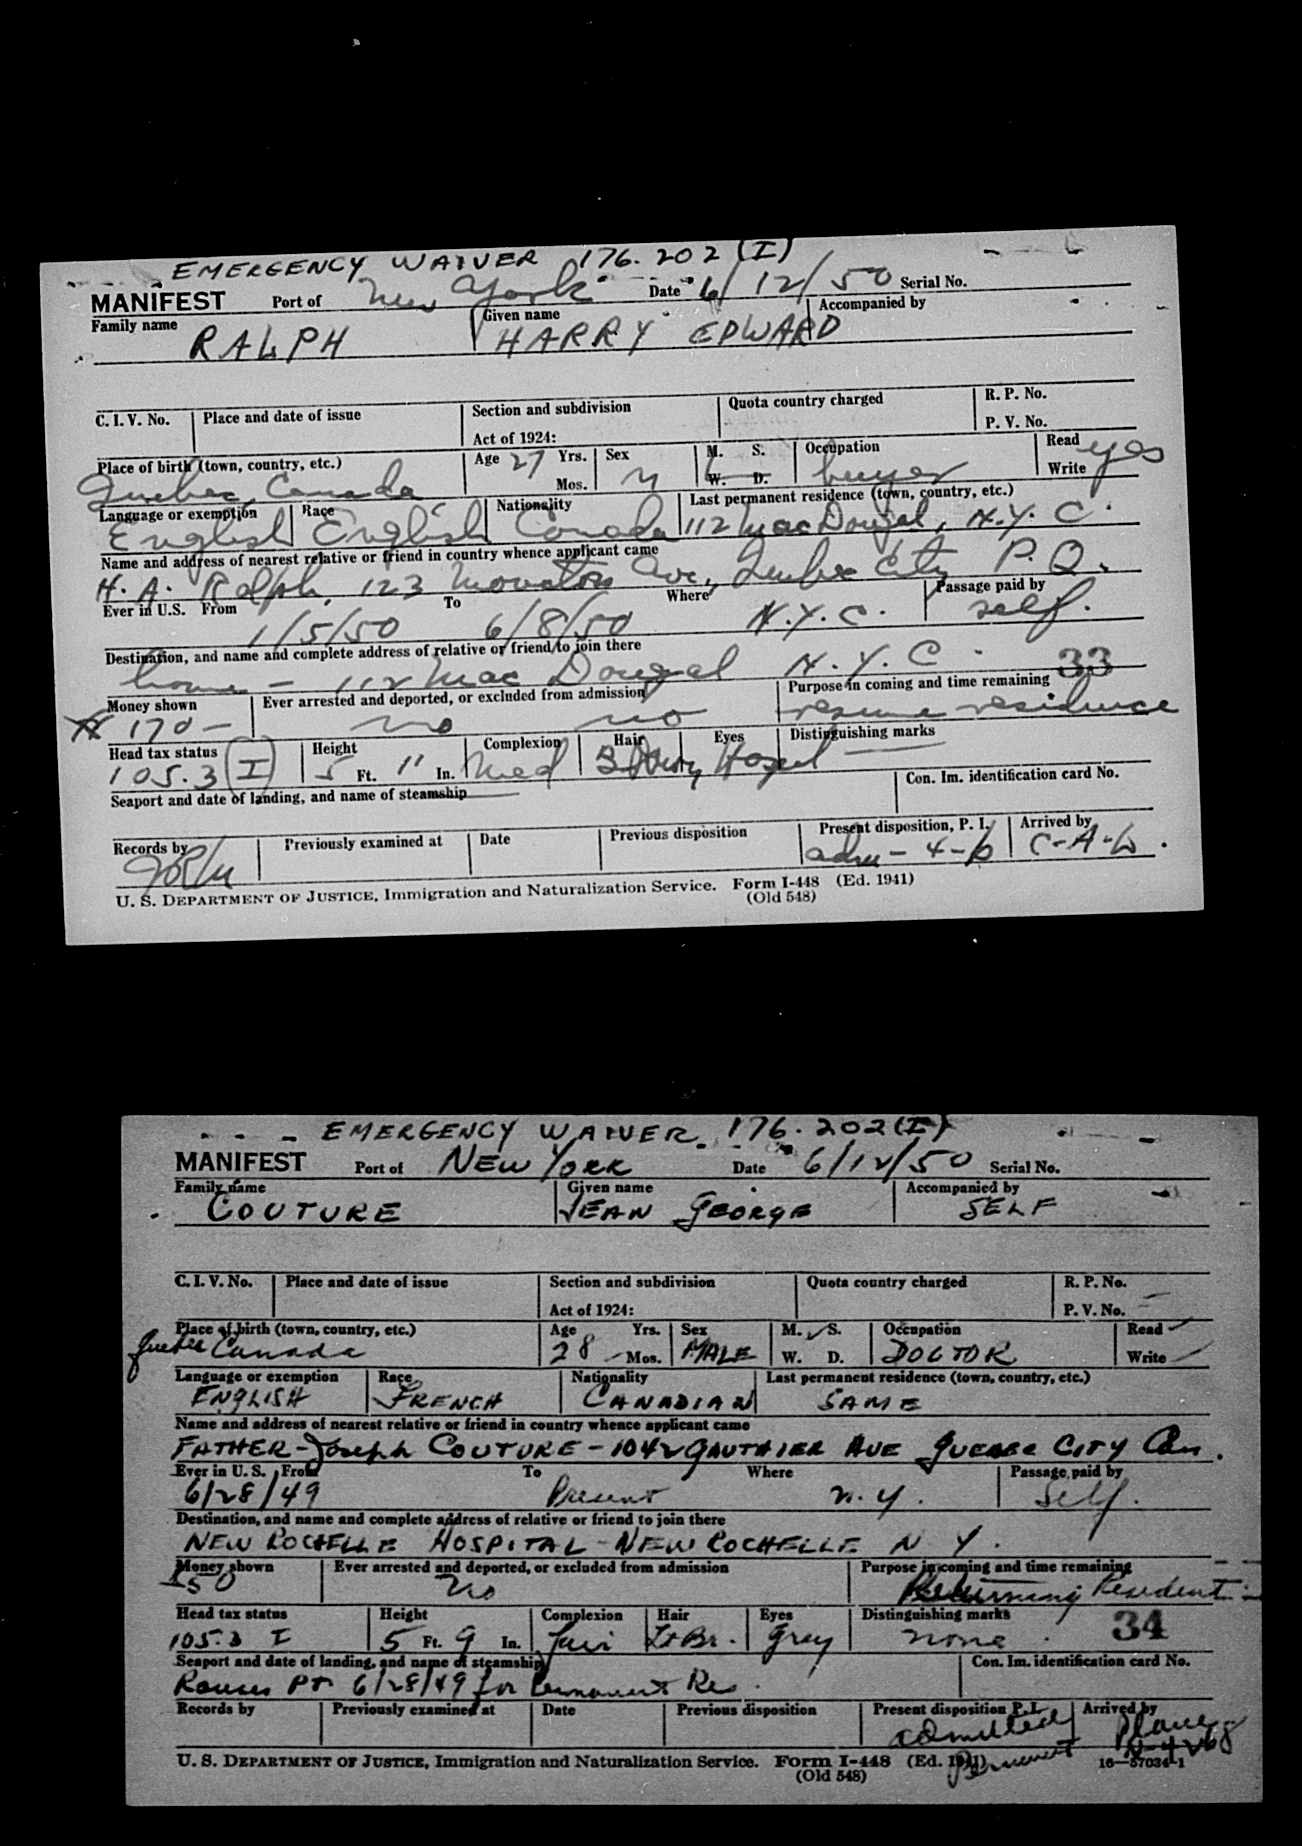 EMERGENCY WAIVER 176.202 (I)
MANIFEST Port of New York Date 6/12/50 Serial No.
Family name Given name Accompanied by
RALPH HARRY EDWARD
C. I. V. No. Place and date of issue Section and subdivision Quota country charged R. P. No.
Act of 1924: P. V. No.
Place of birth (town, country, etc.) Age 27 Yrs. Sex M. S. Occupation Read yes
Quebec, Canada Mos. M W. D. buyer Write
Language or exemption Race Nationality Last permanent residence (town, country, etc.)
English English Canada 112 MacDougal, N.Y.C.
Name and address of nearest relative or friend in country whence applicant came
H. A. Ralph, 123 Ave, Quebec City P.Q.
Ever in U.S. From To Where Passage paid by
1/5/50 6/8/50 N.Y.C. self.
Destination, and name and complete address of relative or friend to join there
home - 112 MacDougal N.Y.C. 33
Money shown Ever arrested and deported, or excluded from admission Purpose in coming and time remaining
170 - no no resume residence
Head tax status Height Complexion Hair Eyes Distinguishing marks
105.3 (I) 5 Ft. 11 In. Med Hazel
Seaport and date of landing, and name of steamship Con. Im. identification card No.
Records by Previously examined at Date Previous disposition Present disposition, P. I. Arrived by
adm-4-b
U. S. DEPARTMENT OF JUSTICE, Immigration and Naturalization Service. Form I-448 (Ed. 1941)
(Old 548)
EMERGENCY WAIVER 176.202(I)
MANIFEST Port of NEW YORK Date 6/12/50 Serial No.
Family name Given name Accompanied by
COUTURE JEAN GEORGE SELF
C. I. V. No. Place and date of issue Section and subdivision Quota country charged R. P. No.
Act of 1924: P. V. No.
Place of birth (town, country, etc.) Age Yrs. Sex M. S. Occupation Read
Quebec Canada 28 Mos. MALE W. D. DOCTOR Write
Language or exemption Race Nationality Last permanent residence (town, country, etc.)
ENGLISH FRENCH CANADIAN SAME
Name and address of nearest relative or friend in country whence applicant came
FATHER-Joseph COUTURE-1042 GAUTHIER AVE QUEBEC CITY Can.
Ever in U. S. From To Where Passage paid by
6/28/49 Present N.Y. Self.
Destination, and name and complete address of relative or friend to join there
NEW ROCHELLE HOSPITAL-NEW ROCHELLE N Y.
Money shown Ever arrested and deported, or excluded from admission Purpose in coming and time remaining
50 no Returning Resident
Head tax status Height Complexion Hair Eyes Distinguishing marks
105.3 I 5 Ft. 9 In. fair Lt Br. Grey none 34
Seaport and date of landing, and name of steamship Con. Im. identification card No.
Rouses Pt 6/28/49 for Permanent Res.
Records by Previously examined at Date Previous disposition Present disposition P.I. Arrived by
admitted Plane
Permanent
U. S. DEPARTMENT OF JUSTICE, Immigration and Naturalization Service. Form I-448 (Ed. 1941) 16-57034-1
(Old 548)